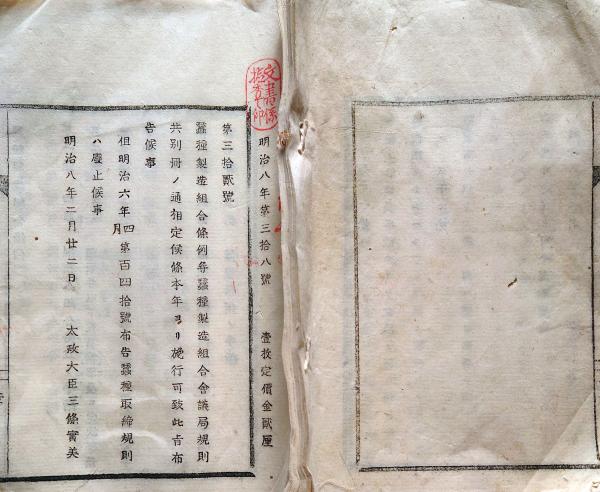 文書係
明治八年第三拾八號 壹枚定價金貳厘
第三拾貳號
蠶種製造組合條例幷蠶種製造組合會議局規則
共別冊ノ通相定候條本年ヨリ施行可致此旨布
告候事
但明治六年四月第百四拾號布告蠶種取締規則
ハ廢止候事
明治八年二月廿二日 太政大臣三條實美